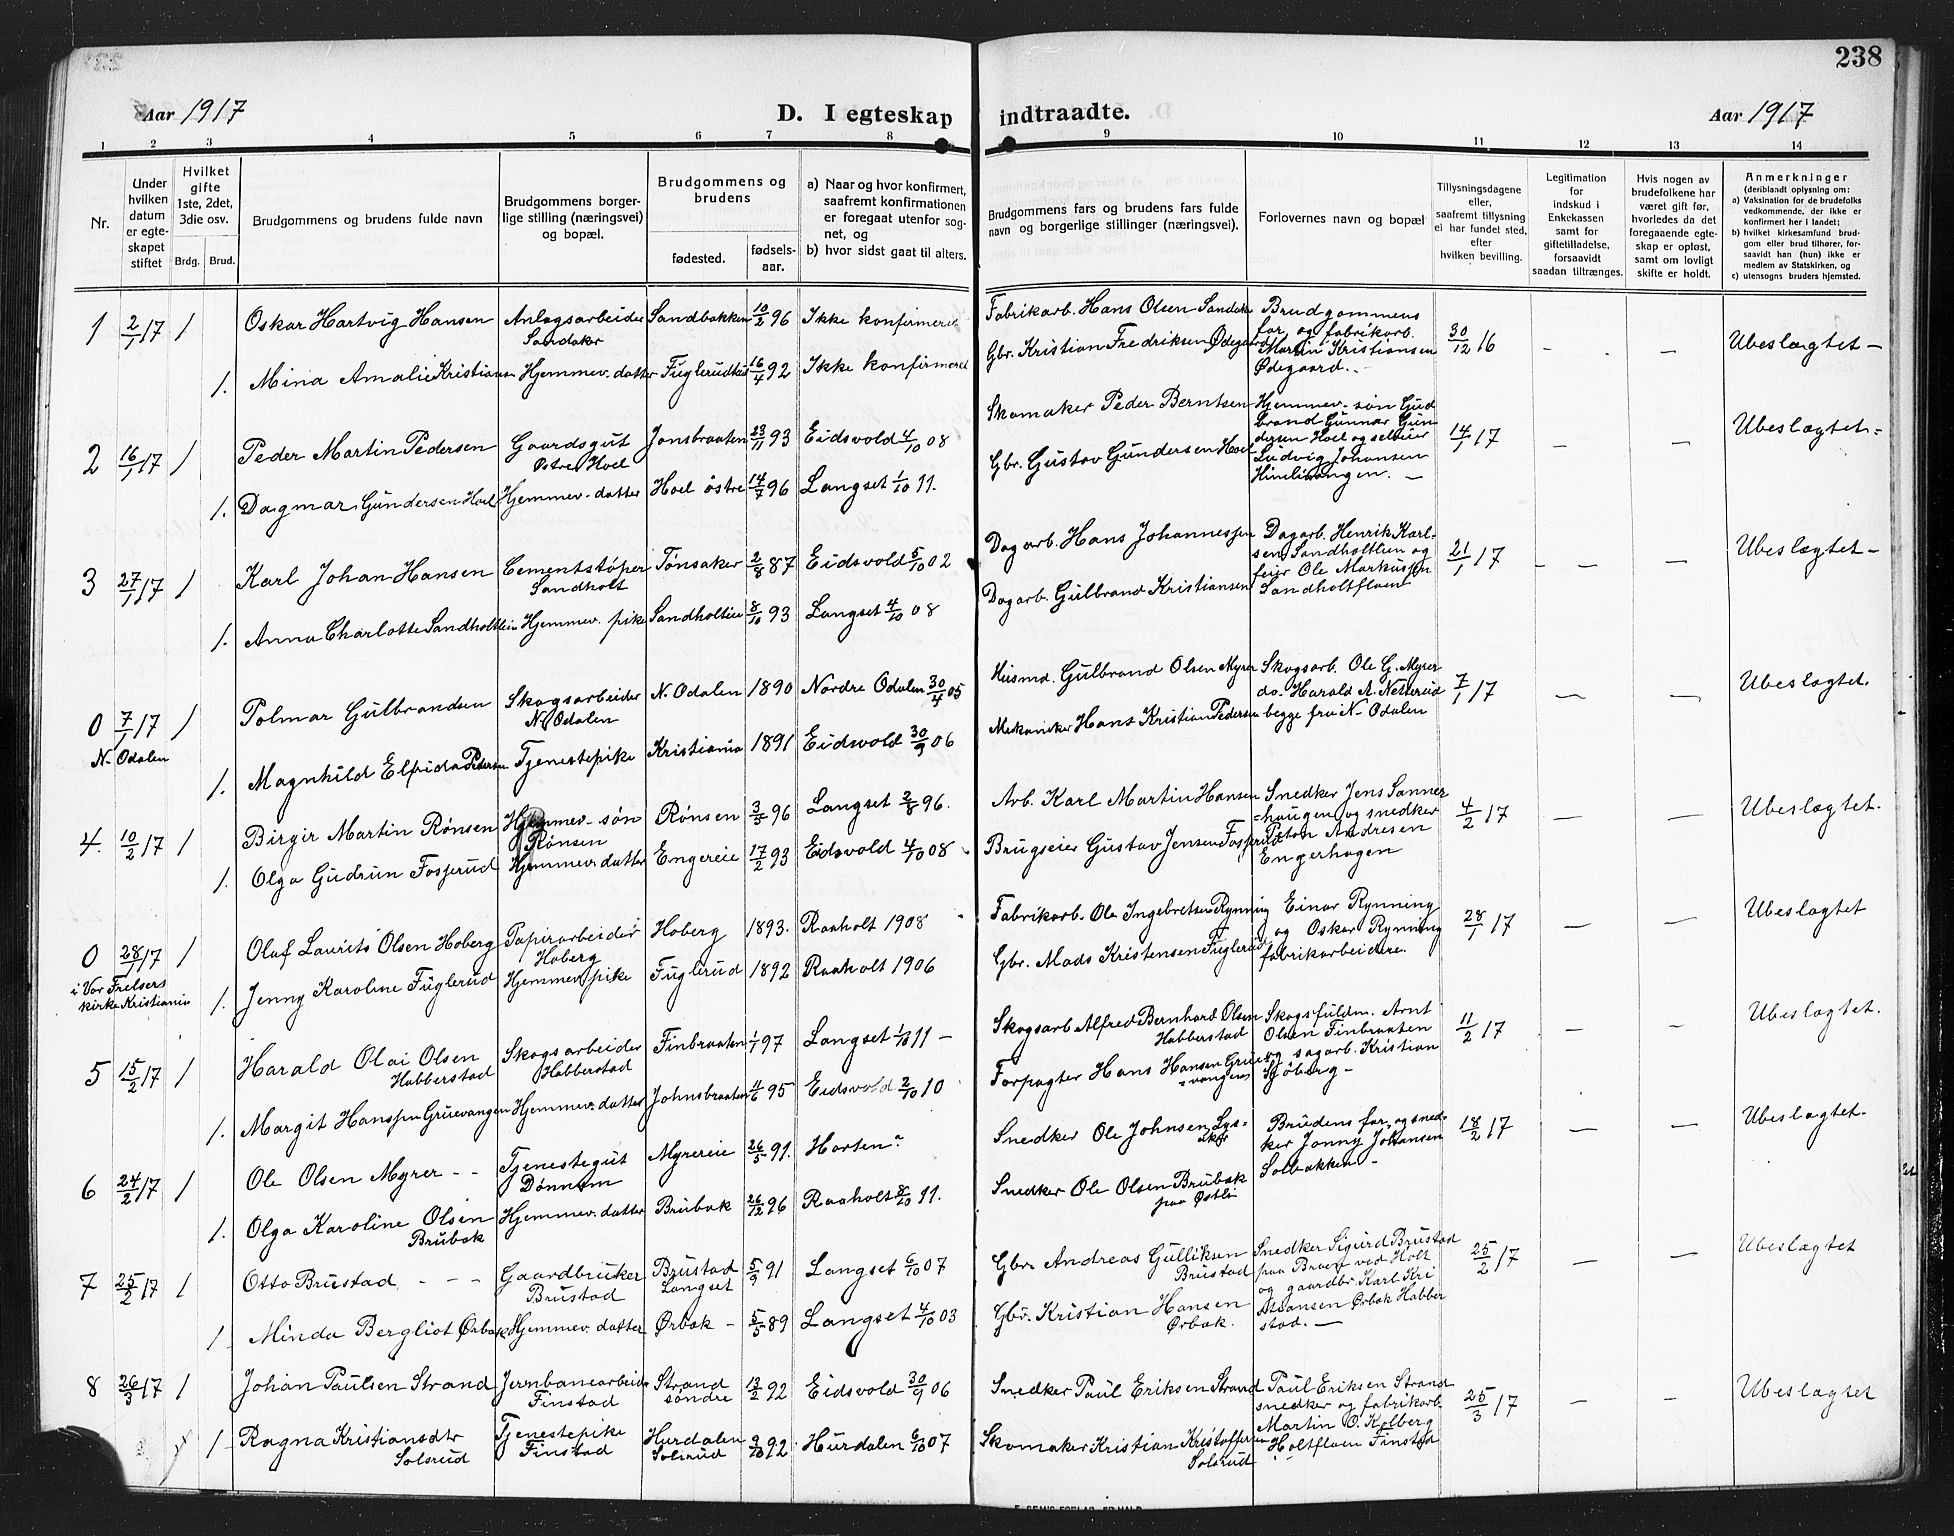 238
Aar 1917
D. I egteskap indtraadte.
Aar 1917
1 2 3 4 5 6 7 8 9 10 11 12 13 14
Nr.
Under hvilken datum er egteskapet stiftet
Hvilket gifte 1ste, 2det, 3die osv.
Brdg. Brud.
Brudgommens og brudens fulde navn
Brudgommens borgerlige stilling (næringsvei) og bopæl.
Brudgommens og brudens
fødested.
fødselsaar.
a) Naar og hvor konfirmert, saafremt konfirmationen er foregaat utenfor sognet, og
b) hvor sidst gaat til alters.
Brudgommens fars og brudens fars fulde navn og borgerlige stillinger (næringsvei).
Forlovernes navn og bopæl
Tillysningsdagene eller, saafremt tillysning ei har fundet sted, efter hvilken bevilling.
Legitimation for indskud i Enkekassen samt for giftetilladelse, forsaavidt saadan tiltrænges.
Hvis nogen av brudefolkene har været gift før, hvorledes da det foregaaende egteskap er opløst, samt om lovligt skifte er holdt.
Anmerkninger (deriblandt oplysning om:
a) Vaksination for de brudefolks vedkommende, der ikke er konfirmert her i landet;
b) hvilket kirkesamfund brudgom eller brud tilhører, forsaavidt han (hun) ikke er medlem av Statskirken, og
c) utensogns bruders hjemsted.
1 2/1 17 1 Oskar Hartvig Hansen Anlægsarbeider Sandaker Sandbakken 10/2 96 Ikke konfirmeret Fabrikarb. Hans Olsen Sandaker Brudgommens far, og fabrikarb. Martin Kristiansen Ødegaard. 30/12 16 — — Ubeslægtet —
1. Mina Amalie Kristiansen Hjemmev. datter Fuglerud 16/4 92 Ikke konfirmeret Gbr. Kristian Fredriksen Ødegaard
2 16/1 17 1 Peder Martin Pedersen Gaardsgut Østre Hoel Jonsbraaten 23/11 93 Eidsvold 4/10 08 Skomaker Peder Berntsen Hjemmev. søn Gudbrand Gunnar Gundersen Hoel og selveier Ludvig Johansen 14/1 17 — — Ubeslægtet
1. Dagmar Gundersen Hoel Hjemmev. datter Hoel østre 14/7 96 Langset 1/10 11. Gbr. Gustav Gundersen Hoel
3 27/1 17 1 Karl Johan Hansen Cementstøper Sandholt Tønsaker 2/8 87 Eidsvold 5/10 02 Dagarb. Hans Johannessen Dagarb. Henrik Karlsen Sandholtlien og feier Ole Markussen Sandholtfloen 21/1 17 — — — Ubeslægtet —
1. Anna Charlotte Sandholtlien Hjemmev. pike Sandholteie 8/10 93 Langset 4/10 08 Dagarb. Gulbrand Kristiansen
0 7/1 17 N. Odalen 1 Polmar Gulbrandsen Skogsarbeider N. Odalen N. Odalen 1890 Nordre Odalen 30/4 05 Husmd. Gulbrand Olsen Myrer Skogsarb. Ole G. Myrer do. Harald A. Netterud begge fra N. Odalen 7/1 17 — — Ubeslægtet.
1. Magnhild Elfrida Pedersen Tjenestepike Kristiania 1891 Eidsvold 30/9 06 Mekaniker Hans Kristian Pedersen
4. 10/2 17 1 Birgir Martin Rønsen Hjemmev. søn Rønsen Rønsen 3/5 96 Langset 2/8 96. Arb. Karl Martin Hansen Snedker Jens Sannerhaugen og snedker Peton Andresen Engerhagen 4/2 17 — — Ubeslægtet.
1. Olga Gudrun Fosserud Hjemmev. datter Engereie 17/2 93 Eidsvold 4/10 08 Brugseier Gustav Jensen Fosserud
0 28/1 17 i Vor Frelsers kirke Kristiania 1 Olaf Laurits Olsen Hoberg Papirarbeider Hoberg Hoberg 1893. Raaholt 1908 Fabrikarb. Ole Ingebretsen Rynning Einar Rynning og Oskar Rynning fabrikarbeidere. 28/1 17 — — Ubeslægtet
1. Jenny Karoline Fuglerud Hjemmev. pike Fuglerud 1892 Raaholt 1906 Gbr. Mads Kristensen Fuglerud
5 15/2 17 1 Harald Olai Olsen Habberstad Skogsarbeider Habberstad Finbraaten 1/1 97 Langset 1/10 11 — Skogsarb Alfred Bernhard Olsen Habberstad Skogsfuldm. Arnt Olsen Finbraaten og sagarb. Kristian Sjøberg — 11/2 17 — — Ubeslægtet.
1. Margit Hanssen Gruevangen Hjemmev. datter Johnsbraaten 11/6 95 Eidsvold 2/10 10 Forpagter Hans Hansen Gruevangen
6 24/2 17 1 Ole Olsen Myrer — — Tjenestegut Dønnem Myrereie 26/5 91. Horten Snedker Ole Johnsen Brudens far, og snedker Jonny Johansen Solbakken — 18/2 17 — — Ubeslægtet.
1. Olga Karoline Olsen Brubak Hjemmev. datter Brubak 26/12 96 Raaholt 8/10 11. Snedker Ole Olsen Brubak paa Østli
7 25/2 17 1 Otto Brustad — — — Gaardbruker Brustad Brustad Langset 5/9 91 Langset 6/10 07 Gbr. Andreas Gulliksen Brustad Snedker Sigurd Brustad paa ved Holt og gaardbr. Karl Kristiansen Ørbak Habberstad. — 25/2 17 — — Ubeslægtet
1 Minda Bergliot Ørbak Hjemmev. datter Ørbak — 5/5 89 Langset 4/10 03 Gbr. Kristian Hansen Ørbak.
8 26/3 17 1 Johan Paulsen Strand Jernbanearbeider Finstad Strand søndre 13/2 92 Eidsvold 30/9 06 Snedker Paul Eriksen Strand Paul Eriksen Strand snedker og fabrikarb. Martin O. Kolberg Holtfloen Finstad 25/3 17 — — Ubeslægtet
1 Ragna Kristiansdtr Solsrud Tjenestepike Finstad Hurdalen Solsrud 9/10 92 Hurdalen 6/10 07 Skomaker Kristian Kristoffersen Solsrud